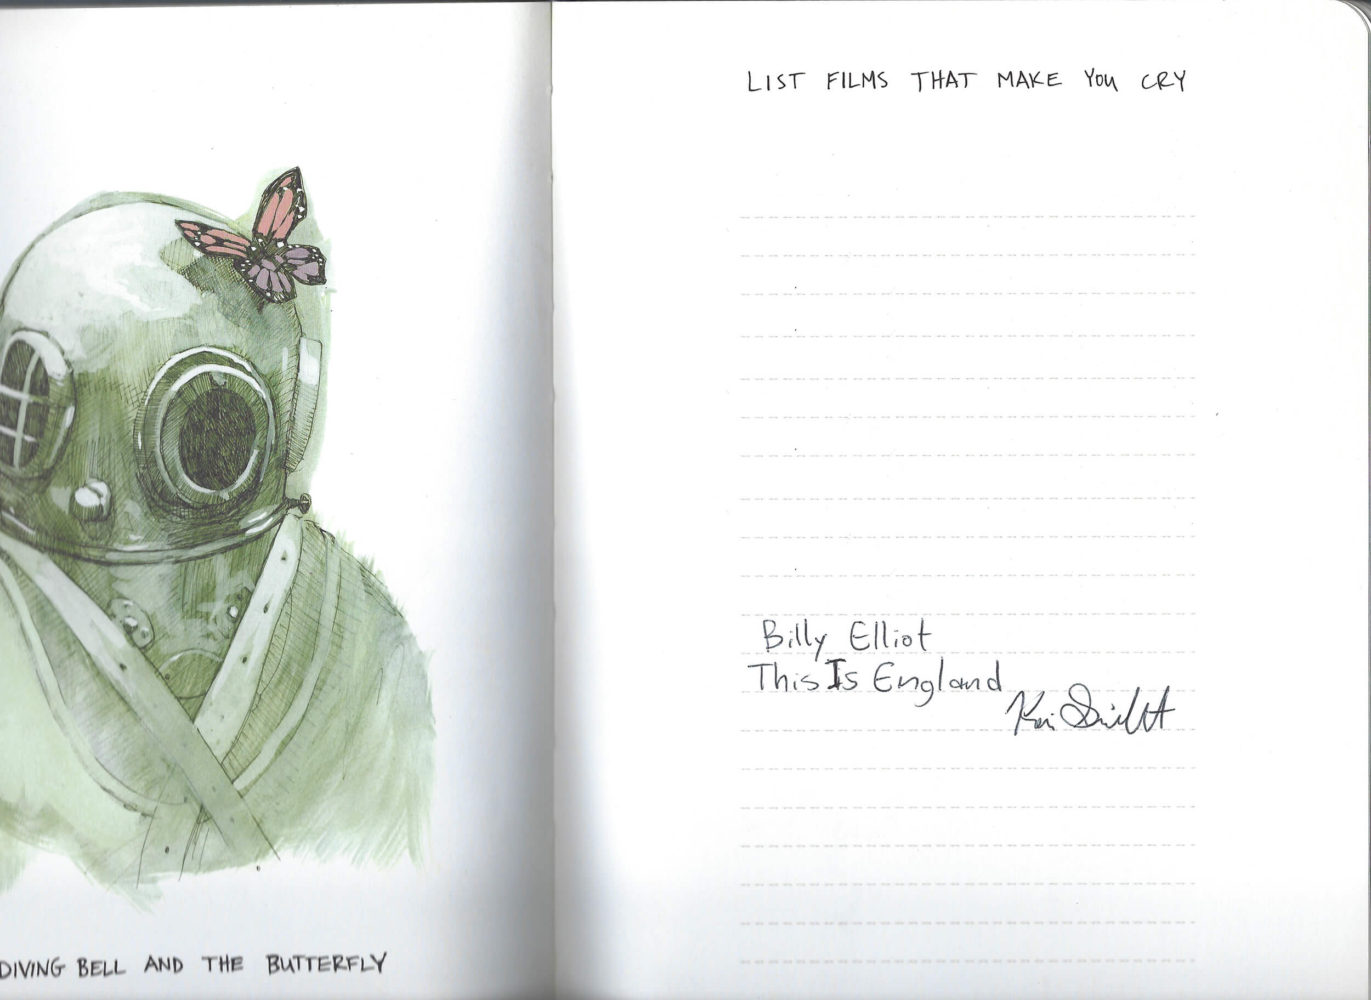 LIST FILMS THAT MAKE YOU CRY
Billy Elliot
This Is England
DIVING BELL AND THE BUTTERFLY